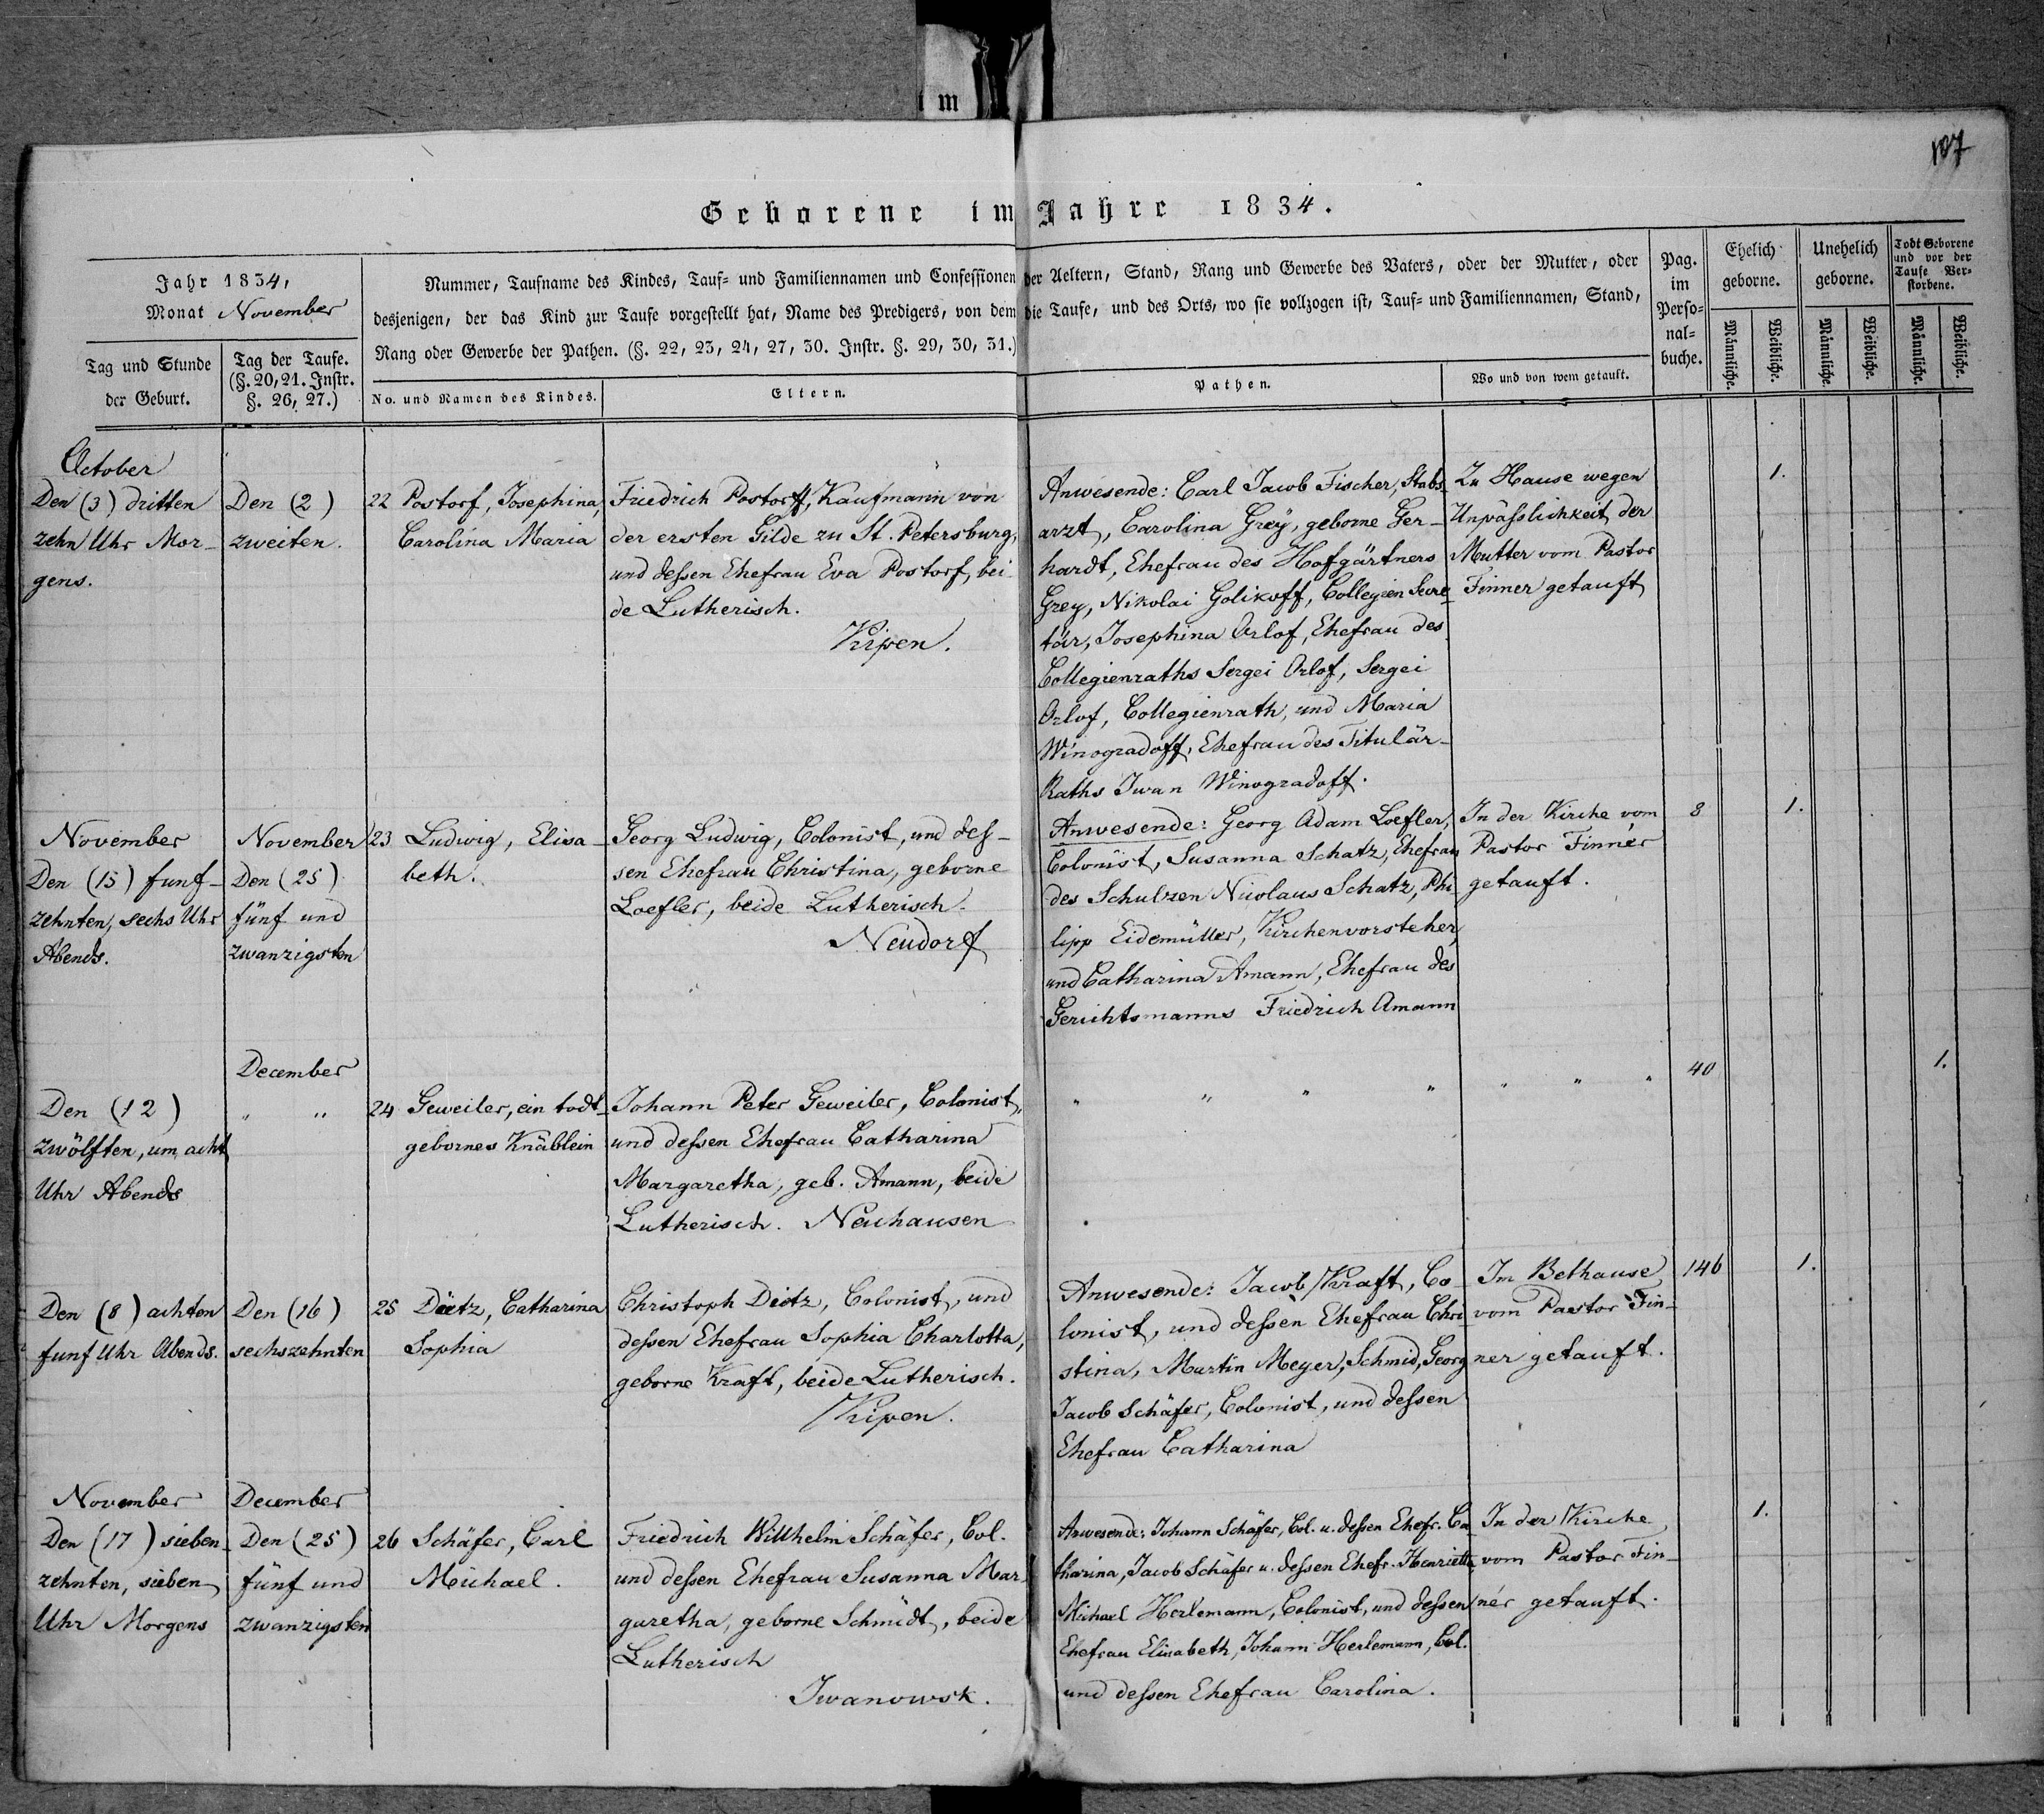 im
107
Geborene im Jahre 1834.
Jahr 1834,
Monat November
Nummer, Taufname des Kindes, Tauf- und Familiennamen und Confessionen der Aeltern, Stand, Rang und Gewerbe des Vaters, oder der Mutter, oder
desjenigen, der das Kind zur Taufe vorgestellt hat, Name des Predigers, von dem die Taufe, und des Orts, wo sie vollzogen ist, Tauf- und Familiennamen, Stand,
Rang oder Gewerbe der Pathen. (§. 22, 23, 24, 27, 30. Instr. §. 29, 30, 31.)
Pag.
im
Perso=
nal=
buche.
Ehelich
geborne.
Unehelich
geborne.
Todt Geborene
und vor der
Taufe Ver=
storbene.
Tag und Stunde
der Geburt.
Tag der Taufe.
(§. 20, 21. Instr.
§. 26, 27.)
No. und Namen des Kindes.
Eltern.
Pathen.
Wo und von wem getauft.
Männliche.
Weibliche.
Männliche.
Weibliche.
Männliche.
Weibliche.
October
Den (3) dritten
zehn Uhr Mor-
gens.
Den (2)
zweiten.
22 Postorf, Josephina,
Carolina Maria
Friedrich Postorff, Kaufmann von
der ersten Gilde zu St. Petersburg,
und dessen Ehefrau Eva Postorf, bei
de Lutherisch.
Kipen.
Anwesende: Carl Jacob Fischer, Stabs-
arzt, Carolina Greÿ, geborne Ger-
hardt, Ehefrau des Hofgärtners
Grey, Nikolai Golikoff, Collegien Secre-
tär, Josephina Orlof, Ehefrau des
Collegienraths Sergei Orlof, Sergei
Orlof, Collegienrath, und Maria
Winogradoff, Ehefrau des Titulär-
Raths Iwan Winogradoff.
Zu Hause wegen
Unpässlichkeit der
Mutter vom Pastor
Finner getauft
1.
November
Den (15) funf-
zehnten, sechs Uhr
Abends.
November
Den (25)
fünf und
zwanzigsten
23 Ludwig, Elisa-
beth.
Georg Ludwig, Colonist, und des-
sen Ehefrau Christina, geborne
Loefler, beide Lutherisch.
Neudorf
Anwesende: Georg Adam Loefler,
Colonist, Susanna Schatz, Ehefrau
des Schulzen Nicolaus Schatz, Phi
lipp Eidemüller, Kirchenvorsteher,
und Catharina Amann, Ehefrau des
Gerichtsmanns Friedrich Amann
In der Kirche vom
Pastor Finnér
getauft.
8
1.
Den (12)
zwölften, um acht
Uhr Abends
December
" "
24 Geweiler, ein todt-
gebornes Knäblein
Johann Peter Geweiler, Colonist,
und dessen Ehefrau Catharina
Margaretha, geb. Amann, beide
Lutherisch. Neuhausen
" " " "
" " "
40
1.
Den (8) achten
funf Uhr Abends.
Den (16)
sechszehnten
25 Dietz, Catharina
Sophia
Christoph Dietz, Colonist, und
dessen Ehefrau Sophia Charlotta,
geborne Kraft, beide Lutherisch.
Kipen.
Anwesende: Jacob Kraft, Co-
lonist, und dessen Ehefrau Chri-
stina, Martin Meyer, Schmid, Georg
Jacob Schäfer, Colonist, und dessen
Ehefrau Catharina
Im Bethause
vom Pastor Fin-
ner getauft.
146
1.
November
Den (17) sieben-
zehnten, sieben
Uhr Morgens
December
Den (25)
fünf und
zwanzigsten
26 Schäfer, Carl
Michael.
Friedrich Willhelm Schäfer, Col.
und dessen Ehefrau Susanna Mar-
garetha, geborne Schmidt, beide
Lutherisch
Iwanowsk.
Anwesende: Johann Schäfer, Col. u. dessen Ehefr. Ca
tharina, Jacob Schäfer u. dessen Ehefr. Henrietta
Michael Herlemann, Colonist, und dessen
Ehefrau Elisabeth, Johann Herlemann, Col.
und dessen Ehefrau Carolina.
In der Kirche
vom Pastor Fin-
nér getauft.
1.